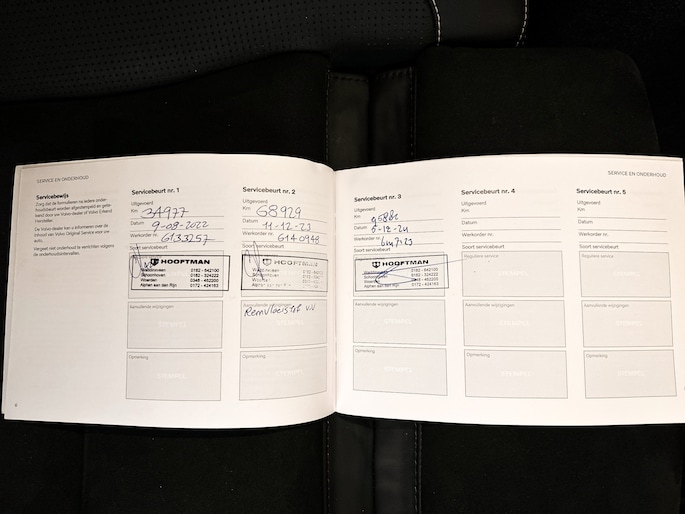 SERVICE EN ONDERHOUD
Servicebewijs
Zorg dat de formulieren na iedere onder-
houdsbeurt worden afgestempeld en gete-
kend door uw Volvo-dealer of Volvo Erkend
Hersteller.
De Volvo-dealer kan u informeren over de
inhoud van Volvo Original Service voor uw
auto.
Vergeet niet onderhoud te verrichten volgens
de onderhoudsintervallen.
6
Servicebeurt nr. 1
Uitgevoerd
Km 34977
Datum 9-08-2022
Werkorder nr. 6133257
Soort servicebeurt
HOOFTMAN
Waddinxveen 0182 - 642100
Schoonhoven 0182 - 324222
Woerden 0348 - 462200
Alphen aan den Rijn 0172 - 424163
Aanvullende wijzigingen
STEMPEL
Opmerking
STEMPEL
Servicebeurt nr. 2
Uitgevoerd
Km 68929
Datum 11-12-23
Werkorder nr. 6140948
Soort servicebeurt
HOOFTMAN
Waddinxveen 0182 - 642100
Schoonhoven 0182 - 324222
0348 - 462200
Alphen aan den Rijn 0172 - 424163
Aanvullende wijzigingen
Remvloeistof V.V
STEMPEL
Opmerking
STEMPEL
SERVICE EN ONDERHOUD
Servicebeurt nr. 3
Uitgevoerd
Km
Datum 5-12-24
Werkorder nr.
Soort servicebeurt
HOOFTMAN
Waddinxveen 0182 - 642100
Schoonhoven 0182 - 324222
Woerden 0348 - 462200
Alphen aan den Rijn 0172 - 424163
Aanvullende wijzigingen
STEMPEL
Opmerking
STEMPEL
Servicebeurt nr. 4
Uitgevoerd
Km
Datum
Werkorder nr.
Soort servicebeurt
Reguliere service
STEMPEL
Aanvullende wijzigingen
STEMPEL
Opmerking
STEMPEL
Servicebeurt nr. 5
Uitgevoerd
Km
Datum
Werkorder nr.
Soort servicebeurt
Reguliere service
STEMPEL
Aanvullende wijzigingen
STEMPEL
Opmerking
STEMPEL